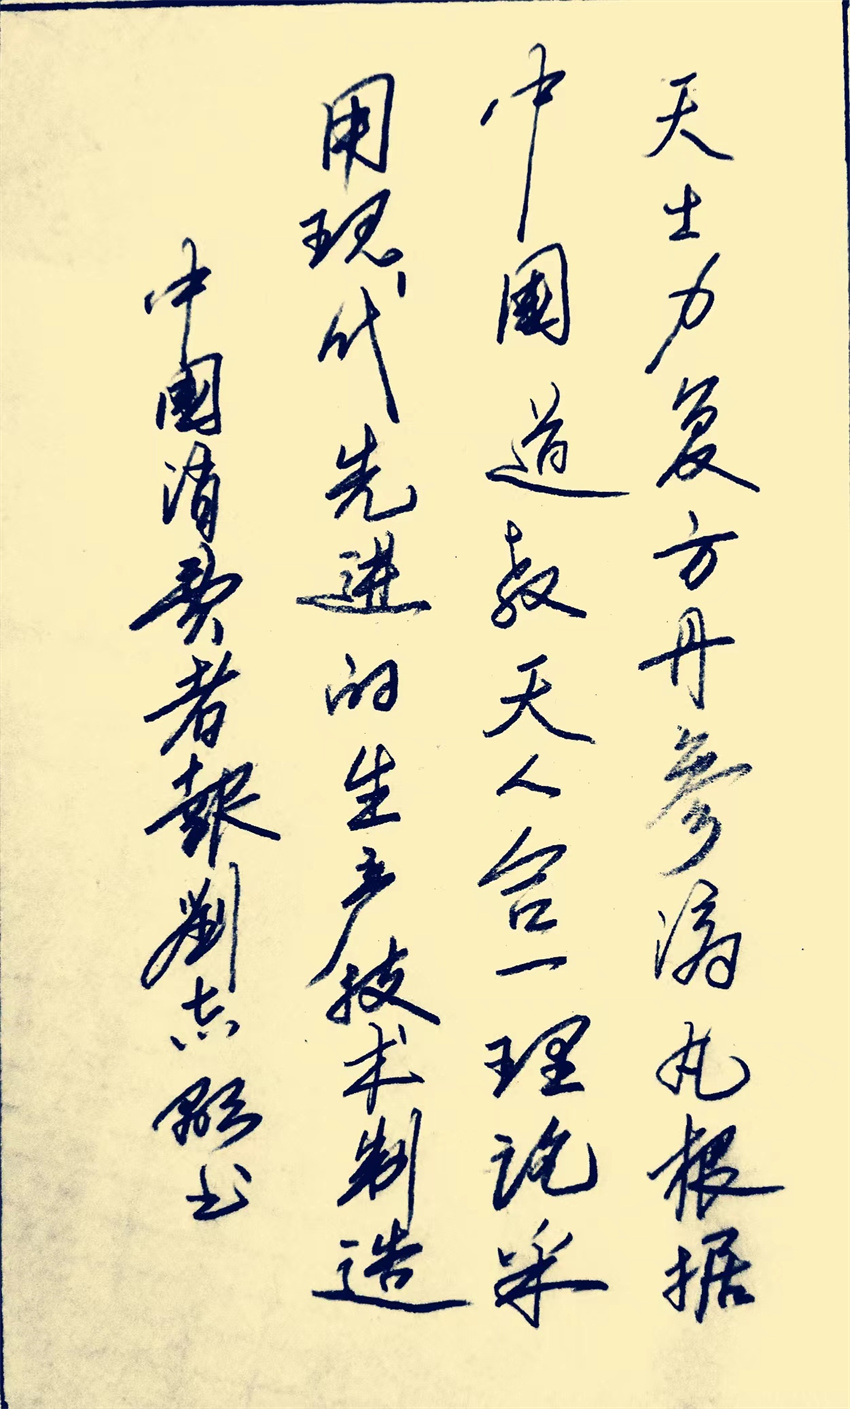 天士力复方丹参滴丸根据
中国道教天人合一理论采
用现代先进的生产技术制造
中國消费者報劉志
书